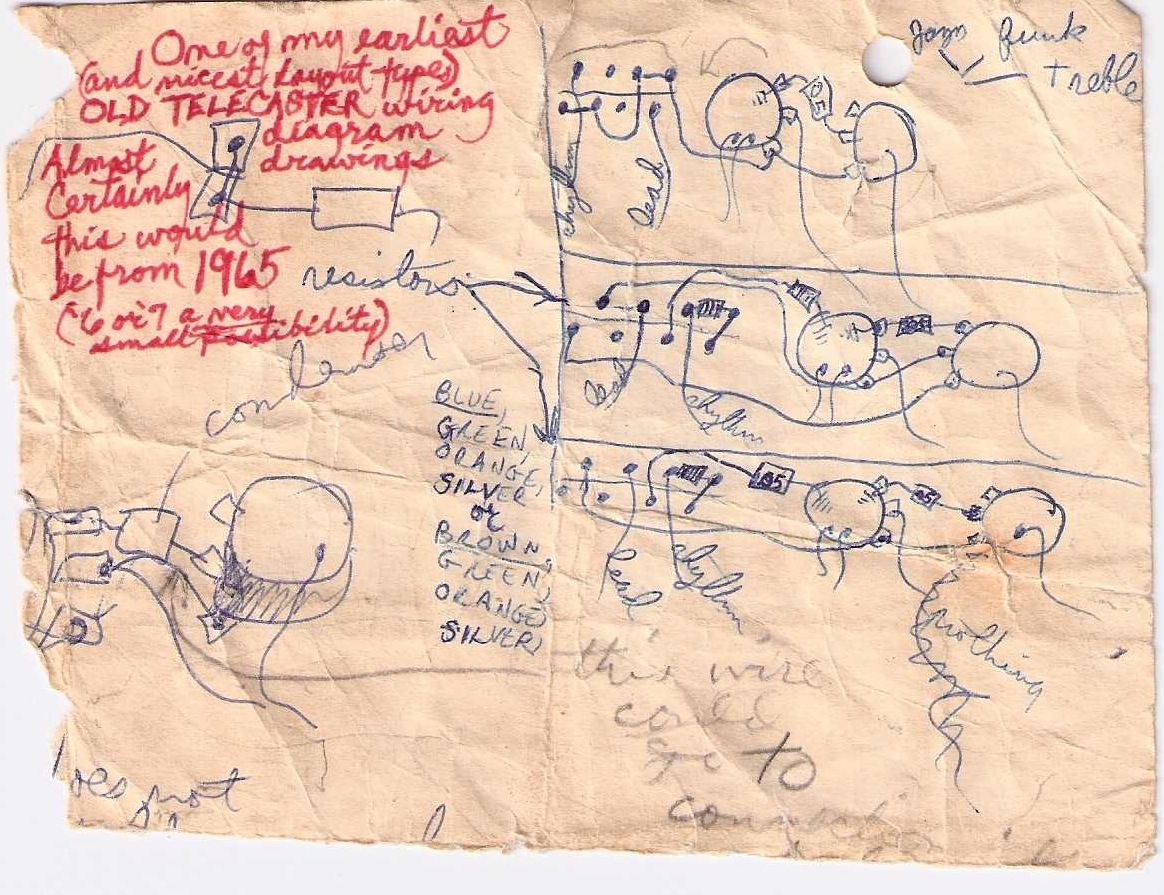 One of my earliest
(and nicest layout types)
OLD TELECASTER wiring
diagram
drawings
Almost
Certainly
this would
be from 1965
('6 or '7 a very
small possibility)
resistors
condenser
BLUE,
GREEN,
ORANGE,
SILVER,
or
BROWN,
GREEN,
ORANGE,
SILVER,
Jazz funk
treble
rhythm
lead
.05
lead
rhythm
.05
.05
lead
rhythm
nothing
this wire
could
go TO
connection
does not